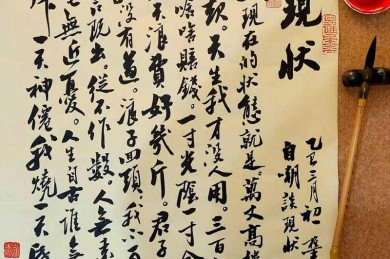 現状
乙巳三月初
自嘲談現状
現在的狀態就是。萬丈高樓
頭。天生我才沒人用。三百
啥啥賠錢。一寸光陰一寸
天浪費好幾斤。君子
沒有道。浪子回頭。我不
言既出。從不作數。人無
無近憂。人生自古誰
一天神僊我燒一天